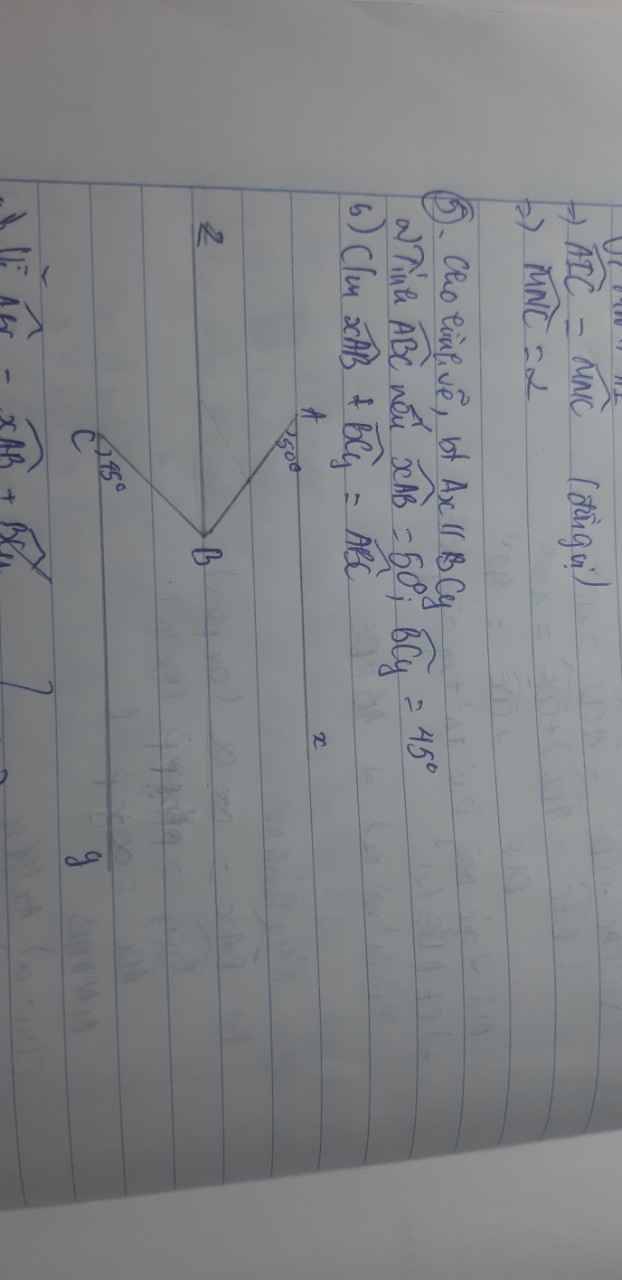 => AIC = MNC (đồng vị)
=> MNC = 2
5. Cho hình vẽ, bt Ax // Cy
a) Tính ABC nếu xAB = 50°; BCy = 45°
b) C/m xAB + BCy = ABC
A 50° x
z B
C 45° y
Vì ABC = xAB + BCy